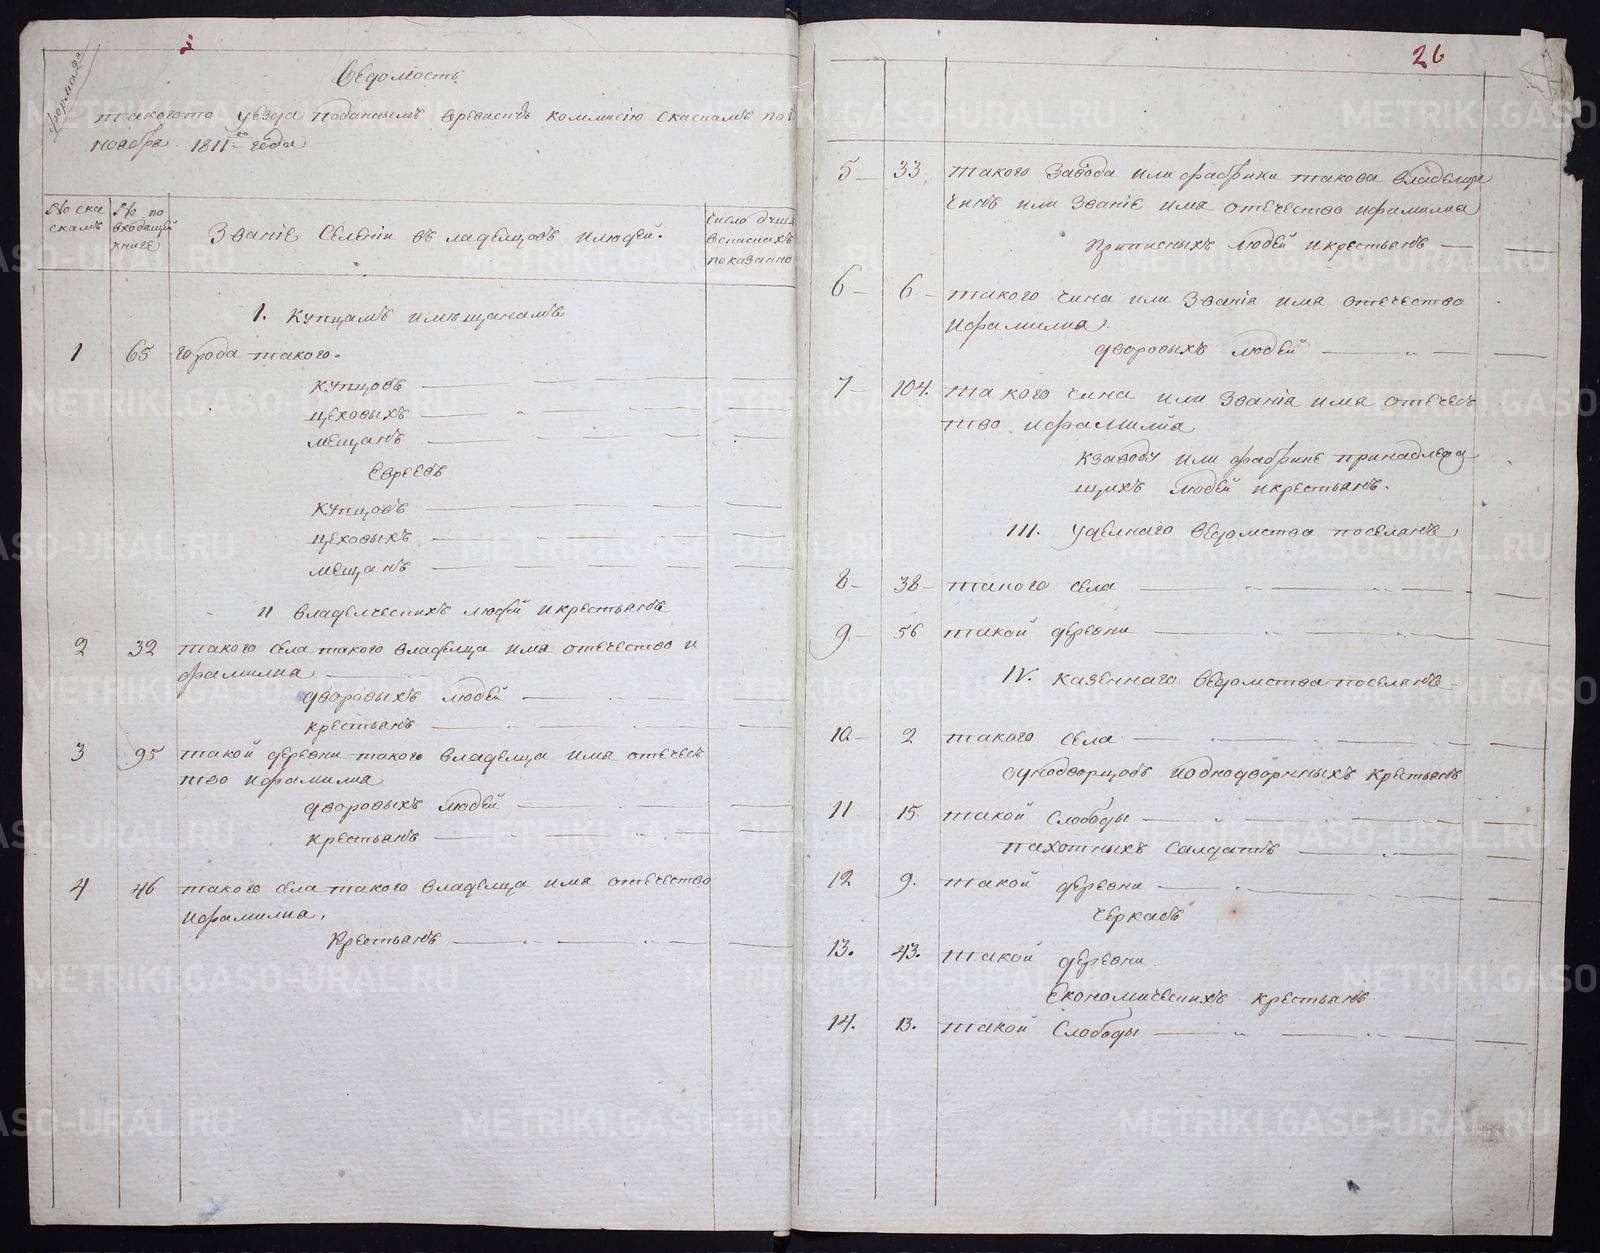 форма 2я
Ведомость
такогото уезда поданнымъ вревизскую коммисiю скаскамъ по 1
ноября 1811го года
№ ска
скамъ
№ по
входящей
книге
Званiе Селенiи владельцовъ илюдей.
число душъ
вскаскахъ
показанно
I. Купцамъ имещанамъ
1 65 города такого.
купцовъ
цеховыхъ
мещанъ
Евреевъ
купцовъ
цеховыхъ
мещанъ
II владелческихъ людей икрестьянъ
2 32 такого села такого владелца имя отечество и
фамилиа
дворовыхъ людей
крестьянъ
3 95 такой деревни такого владелца имя отечес
тво ифамилиа
дворовыхъ людей
крестьянъ
4 46 такого села такого владелца имя отечество
ифамилиа,
Крестьянъ
26
5 33 такого завода или фабрики такова владелца
чинъ или званiе имя отечество ифамилиа
приписныхъ людей икрестьянъ
6 6 такого чина или званiя имя отечество
ифамилиа.
дворовыхъ людей
7 104. такого чина или званiя имя отечес
тво ифамилиа
кзаводу или фабрике принадлежа
щихъ людей икрестьянъ.
III. Уделнаго ведомства поселянъ
8 38 такого села
9 56 такой деревни
IV. казеннаго ведомства поселянъ
10 2 такого села
однодворцовъ иоднодворчныхъ крестьянъ
11 15. такой Слободы
пахотныхъ Салдатъ
12 9. такой деревни
черкасъ
13. 43. такой деревни.
Економическихъ крестьянъ
14. 13. такой Слободы
METRIKI.GASO-URAL.RU